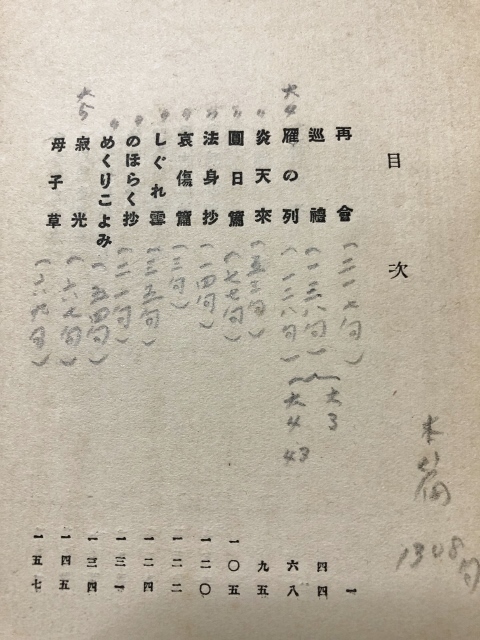 本篇 1308句
目次
再會 (二一七句) 一
巡禮 (一三八句) 大3 四四
大4 雁の列 (一二八句) 大4 43 六八
〃 炎天來 (五三句) 九五
〃 圓日篇 (七七句) 一〇五
〃 法身抄 (一四句) 一二〇
〃 哀傷篇 (三句) 一二二
〃 しぐれ雲 (三五句) 一二四
〃 のほらく抄 (二一句) 一三一
めくりこよみ (五四句) 一三四
大5 寂光 (六七句) 一四五
母子草 (六九句) 一五七